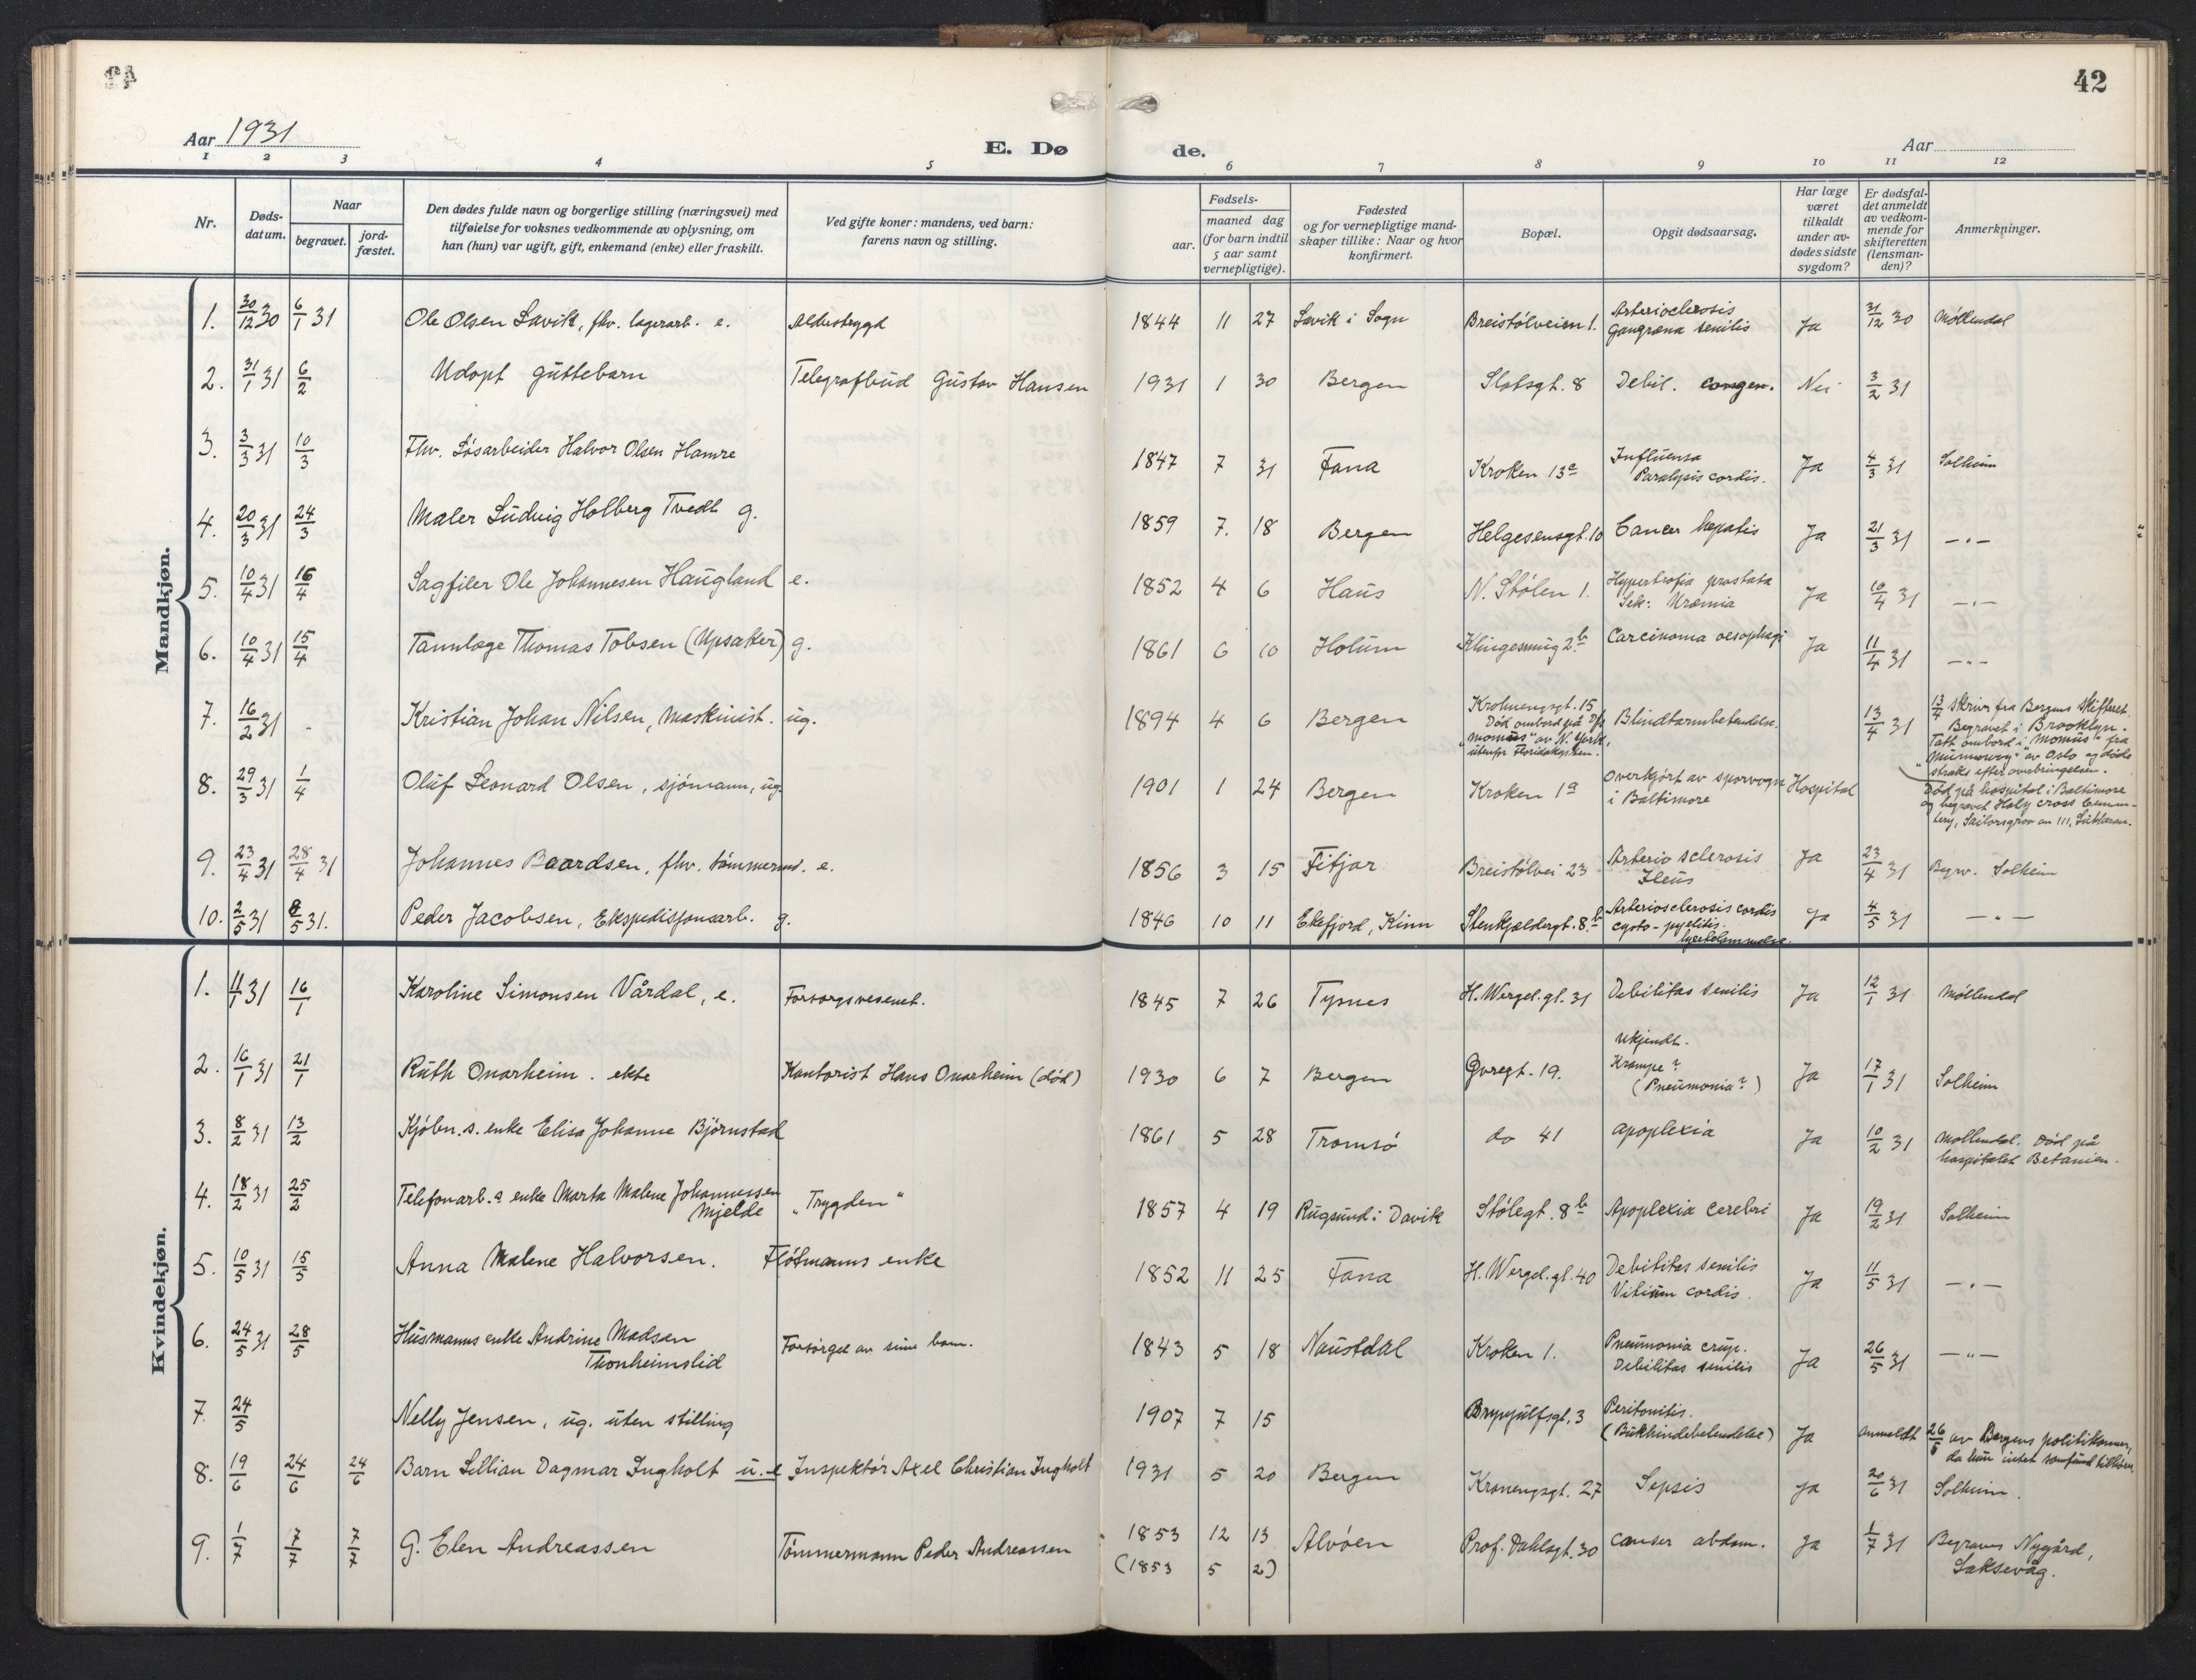 42
Aar 1931
E. Dø de.
Aar
1 2 3 4 5 6 7 8 9 10 11 12
Nr.
Døds-datum.
Naar
begravet.
jord-fæstet.
Den dødes fulde navn og borgerlige stilling (næringsvei) med
tilføielse for voksnes vedkommende av oplysning, om
han (hun) var ugift, gift, enkemand (enke) eller fraskilt.
Ved gifte koner: mandens, ved barn:
farens navn og stilling.
Fødsels-
aar.
maaned dag
(for barn indtil
5 aar samt
vernepligtige).
Fødested
og for vernepligtige mand-
skaper tillike: Naar og hvor
konfirmert.
Bopæl.
Opgit dødsaarsag.
Har læge
været
tilkaldt
under av-
dødes sidste
sygdom?
Er dødsfal-
det anmeldt
av vedkom-
mende for
skifteretten
(lensman-
den)?
Anmerkninger.
Mandkjøn.
1. 30/12 30 6/1 31 Ole Olsen Lavik, fhv. lagerarb. e. Alderstrygd 1844 11 27 Lavik i Sogn Breistølveien 1. Arteriosclerosis Gangræna senilis Ja 31/12 30 Møllendal
2. 31/1 31 6/2 Udøpt guttebarn Telegrafbud Gustav Hansen 1931 1 30 Bergen Slotsgt. 8 Debil. congen. Nei 3/2 31
3. 3/3 31 10/3 Fhv. Løsarbeider Halvor Olsen Hamre 1847 7 31 Fana Kroken 13a Influensa Paralysis cordis. Ja 4/3 31 Solheim
4. 20/3 31 24/3 Maler Ludvig Holberg Tvedt g. 1859 7. 18 Bergen Helgesensgt. 10 Cancer hepatis Ja 21/3 31 —„—
5. 10/4 31 16/4 Sagfiler Ole Johannesen Haugland e. 1852 4 6 Haus N. Stølen 1. Hypertrofia prostata Sek: Uræmia Ja 10/4 31 —„—
6. 10/4 31 15/4 Tannlæge Thomas Tobsen (Upsaker) g. 1861 6 10 Holum Klingesmug 2b Carcinoma oesophagi Ja 11/4 31 —„—
7. 16/2 31 - Kristian Johan Nilsen, maskinist. ug. 1894 4 6 Bergen Krohnengsgt. 15
Død ombord på D/s
"Momus" av N. York,
utenfor Floridakysten. Blindtarmbetendelse. 13/4 31 13/4 skriv fra Bergens skifteret.
Begravet i Brooklyn.
Tatt ombord i "Momus" fra
"Munorway" av Oslo og døde
straks efter overbringelsen.
8. 29/3 31 1/4 Oluf Leonard Olsen, sjømann, ug. 1901 1 24 Bergen Kroken 1a Overkjørt av sporvogn i Baltimore Hospital Død på hospital i Baltimore
og begravet Holy cross Ceme-
tery, Sailorsgrav nn 111, Lutheran.
9. 23/4 31 28/4 31 Johannes Baardsen, fhv. tømmerm. e. 1856 3 15 Fitjar Breistølvei 23 Arterio sclerosis Ileus Ja 23/4 31 Begrv. Solheim
10. 2/5 31 8/5 31. Peder Jacobsen, Ekspedisjonsarb. g. 1846 10 11 Eikefjord, Kinn Stenkjældergt. 8b Arteriosclerosis cordis
cysto-pyelitis.
hjertelammelse. Ja 4/5 31 —„—
Kvindekjøn.
1. 11/1 31 16/1 Karoline Simonsen Vårdal, e. Forsorgsvesenet. 1845 7 26 Tysnes H. Wergel. gt. 31 Debilitas senilis Ja 12/1 31 Møllendal
2. 16/1 31 21/1 Ruth Onarheim. ekte Kontorist Hans Onarheim (død) 1930 6 7 Bergen Øvregt. 19. Ukjendt.
Krampe?
(Pneumonia?) Ja 17/1 31 Solheim
3. 8/2 31 13/2 Kjøbm.s. enke Elisa Johanne Bjørnstad 1861 5 28 Tromsø do 41 apoplexia Ja 10/2 31 Møllendal. Død på
hospitalet Betanien.
4. 18/2 31 25/2 Telefonarb.s enke Marta Malene Johannessen
Mjelde "Trygden" 1857 4 19 Rugsund i Davik Stølegt. 8b Apoplexia cerebri Ja 19/2 31 Solheim
5. 10/5 31 15/5 Anna Malene Halvorsen. Fløtmanns enke 1852 11 25 Fana H. Wergel. gt. 40 Debilitas senilis
Vitium cordis. Ja 11/5 31 —„—
6. 24/5 31 28/5 Husmanns enke Andrine Madsen
Thonheimslid Forsørget av sine barn. 1843 5 18 Naustdal Kroken 1. Pneumonia crup.
Debilitas senilis Ja 26/5 31 —„—
7. 24/5 Nelly Jensen, ug. uten stilling 1907 7 15 Brynjulfsgt. 3 Peritonitis.
(Bukhindebetendelse) Ja anmeldt 26/5 av Bergens politikammer,
da hun intet samfund tilhører.
8. 19/6 24/6 24/6 Barn Lillian Dagmar Ingholt u.e Inspektør Axel Christian Ingholt 1931 5 20 Bergen Kronengsgt. 27 Sepsis Ja 20/6 31 Solheim.
9. 1/7 7/7 7/7 G. Elen Andreassen Tømmermann Peder Andreassen 1853 12 13 Alvøen Prof. Dahlsgt. 30 Canser abdom. Ja 1/7 31 Begraves Nygård,
Laksevåg.
(1853 5 2)